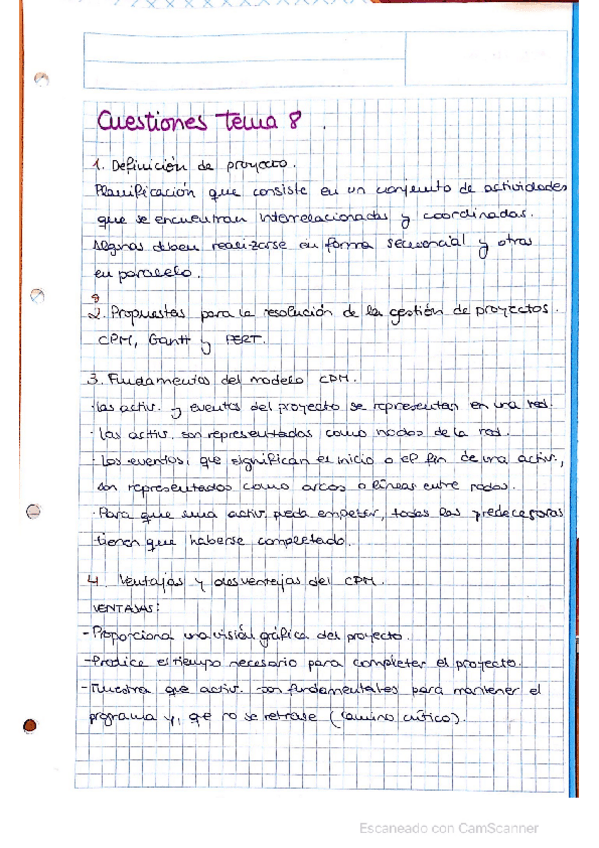 Cuestiones tema 8.
1. Definición de proyecto.
Planificación que consiste en un conjunto de actividades
que se encuentran interrelacionadas y coordinadas.
Algunas deben realizarse en forma secuencial y otras
en paralelo.
2. Propuestas para la resolución de la gestión de proyectos.
CPM, Gantt y PERT.
3. Fundamentos del modelo CPM.
·las activ. y eventos del proyecto se representan en una red.
· las activ. son representadas como nodos de la red.
· Los eventos, que significan el inicio o el fin de una activ.,
son representados como arcos o líneas entre nodos.
·Para que una activ. pueda empezar, todas las predecesoras
tienen que haberse completado.
4. Ventajas y desventajas del CPM.
VENTAJAS:
-Proporciona una visión gráfica del proyecto.
-Predice el tiempo necesario para completar el proyecto.
-Muestra que activ. son fundamentales para mantener el
programa y, que no se retrase (camino crítico).
Escaneado con CamScanner